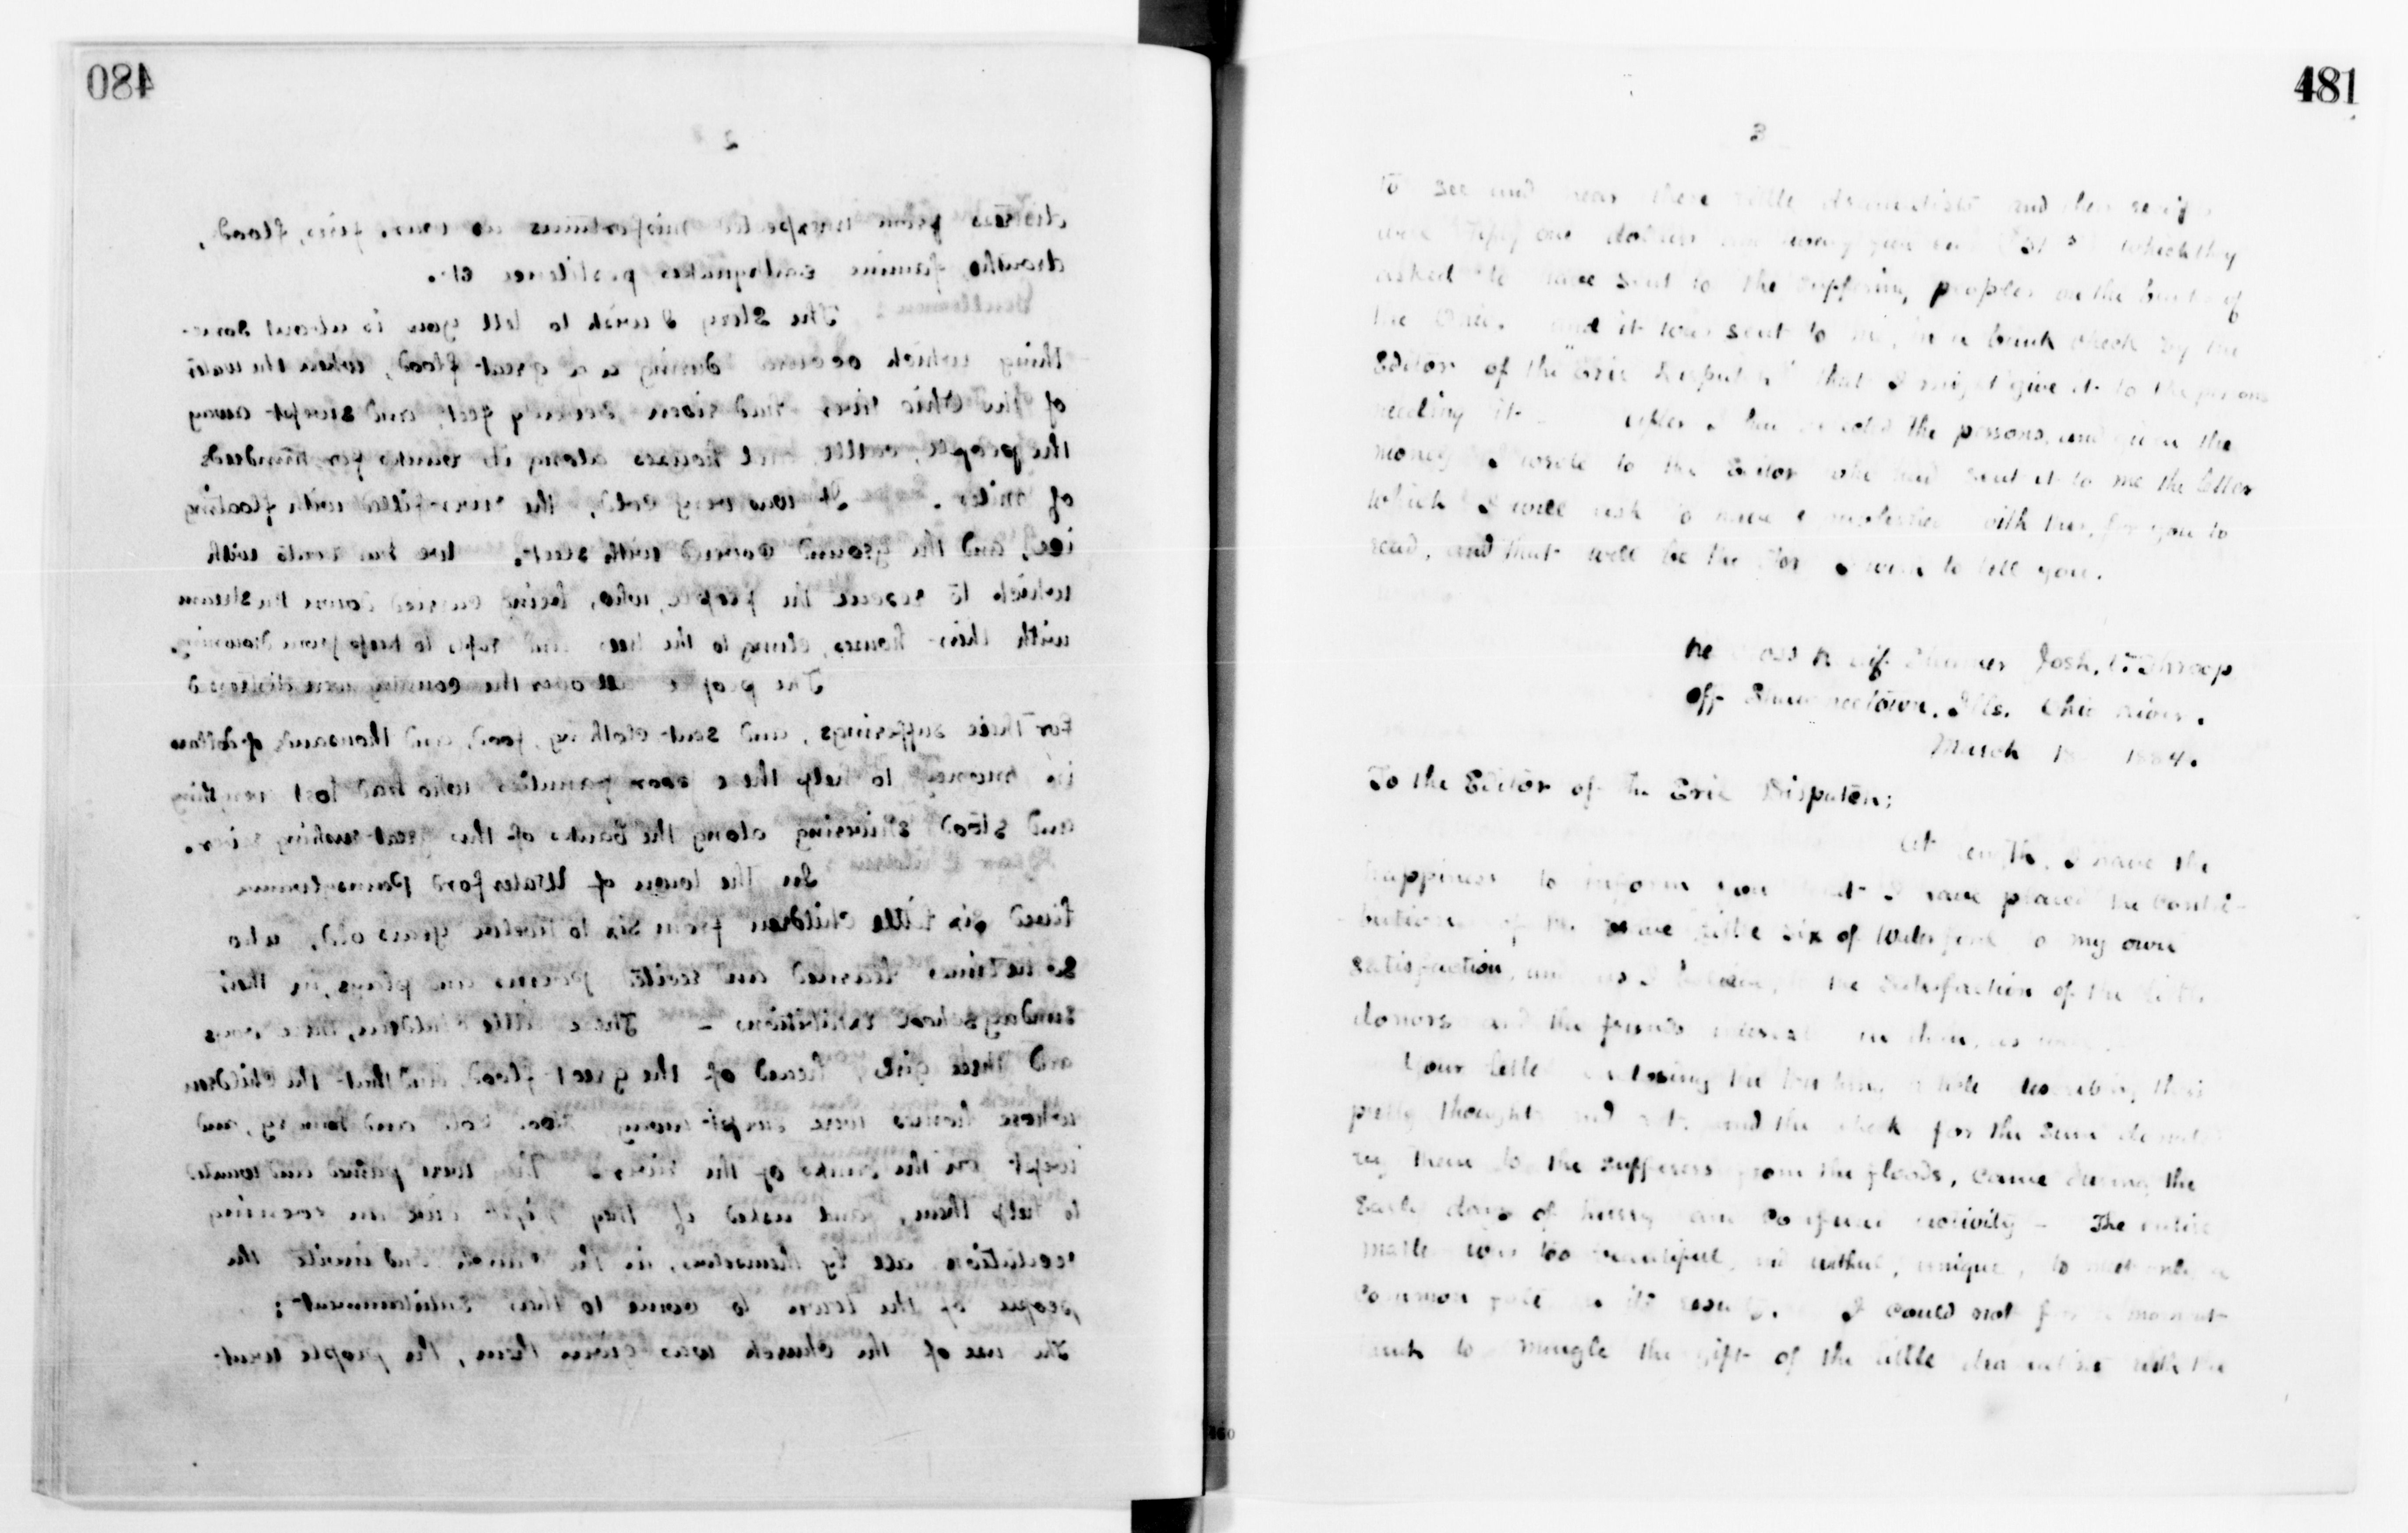 480
2
distress from unexpected misfortunes as war, fire, flood,
drouths, famine earthquakes pestilence etc.
Gentlemen
The Story I wish to tell you is about some-
thing which occured during a great flood, when the water
of the Ohio river had risen seventy feet, and swept away
the people, cattle, and houses along its banks for hundreds
of miles. It was very cold, the river filled with floating
ice, and the ground covered with sleet. We had boats with
which to rescue the people, who, being carried down the stream
with their houses, clung to the trees and rafts to keep from drowning.
The people all over the country were distressed
for their sufferings, and sent clothing, food, and thousands of dollars
in money to help these poor families who had lost everything
and stood shivering along the banks of this great rushing river.
Dear Children
In the town of Waterford Pennsylvania
lived six little children from six to twelve years old, who
sometimes learned and recited poems and plays, in their
sunday school exhibitions – These little children, three boys
and three girls, heard of the great flood, and that the children
whose homes were swept away, stood cold and hungry, and
wept on the banks of the river. They were pained and wanted
to help them, and asked if they might give an evening
recitation all by themselves, in the church and invite the
people of the town to come to their entertainment;
The use of the church was given them, the people went
481
3
to see and hear these little dramatists and their receipts
were fifty one dollars and twenty five cts. which they
asked to have sent to the suffering peoples on the banks of
the Ohio. and it was sent to me, in a bank check by the
Editor of the "Erie Dispatch" that I might give it to the persons
needing it – after I had selected the persons, and given the
money I wrote to the Editor who had sent it to me the letter
which I will ask to have translated with this, for you to
read, and that will be the story I wish to tell you.
Red Cross Relief Steamer Josh. V. Throop
off Shawneetown, Ills. Ohio River.
March 18 1884.
To the Editor of the Erie Dispatch;
At length, I have the
happiness to inform you that I have placed the contri-
bution of the brave little six of Waterford to my own
satisfaction, and as I believe, to the satisfaction of the little
donors and the friends interested in them, as well.
Your letter enclosing the touching article describing their
pretty thought and act, and the check for the sum donated
by them to the sufferers from the floods, came during the
early days of hurry and confused activity – The entire
matter was too beautiful, and withal, unique, to meet only a
common fate in its results. I could not for a moment
think to mingle the gift of the little dramatists with the